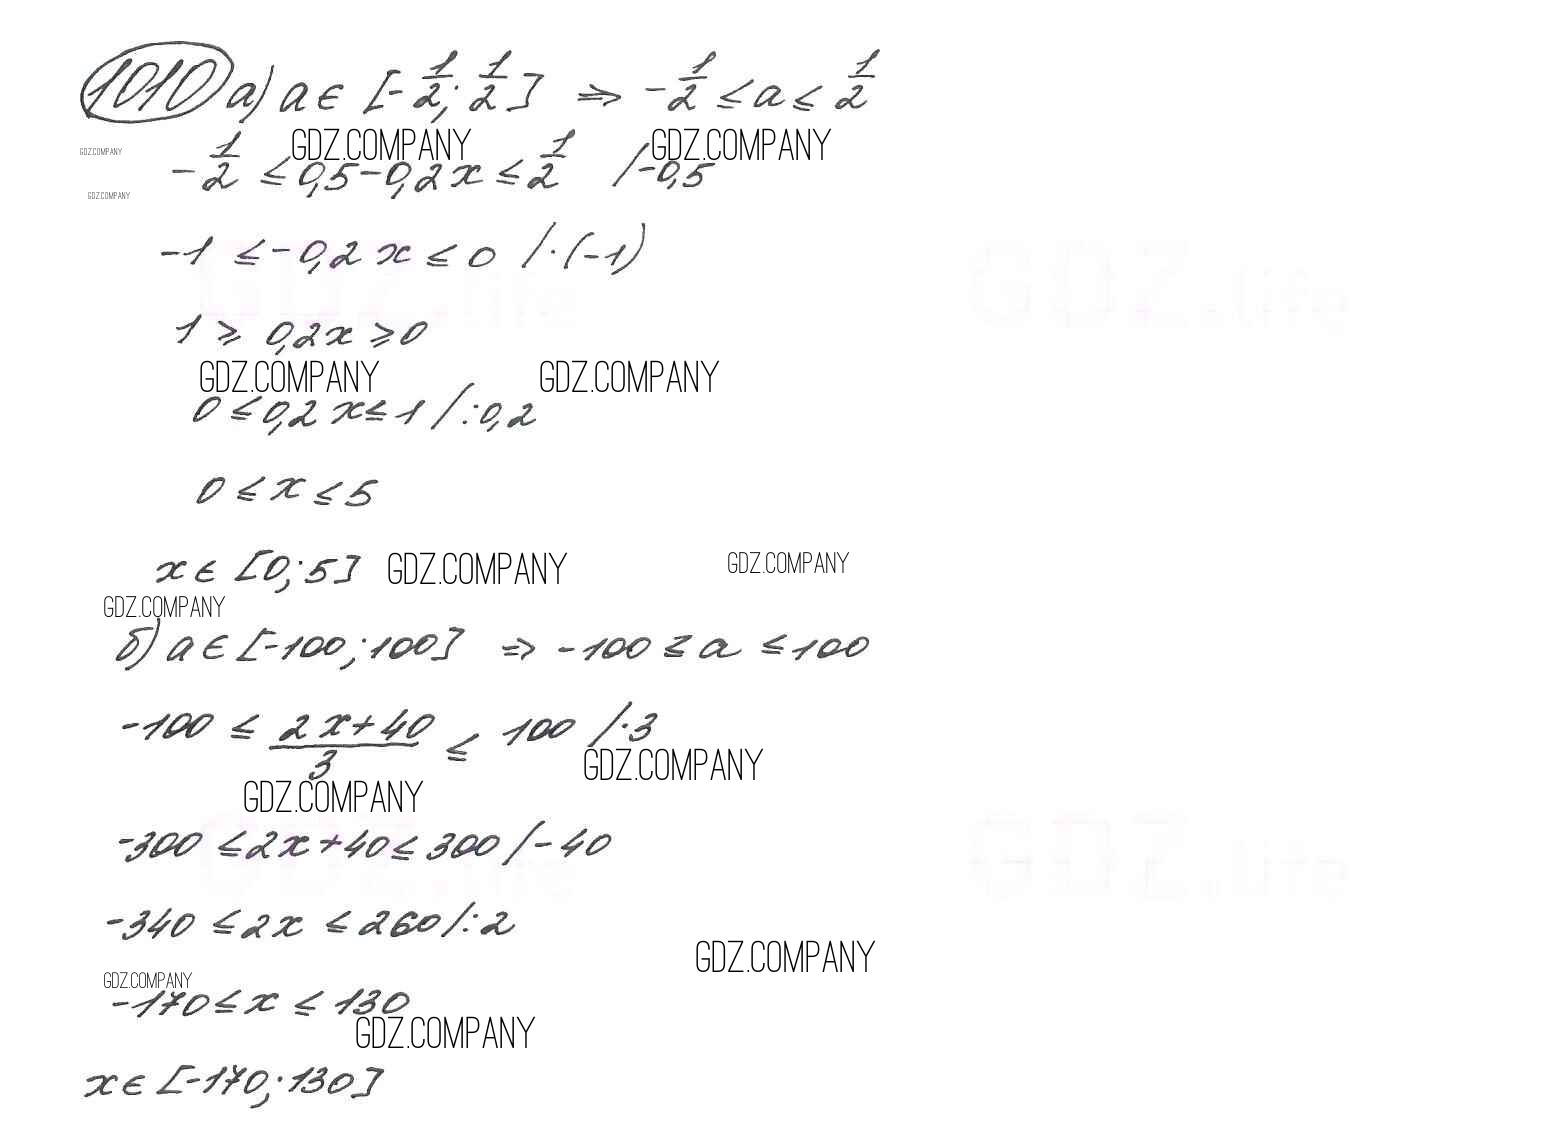 1010 а) a ∈ [-1/2; 1/2] ⇒ -1/2 ≤ a ≤ 1/2
GDZ.COMPANY GDZ.COMPANY
GDZ.COMPANY
-1/2 ≤ 0,5-0,2x ≤ 1/2 /-0,5
GDZ.COMPANY
-1 ≤ -0,2x ≤ 0 /·(-1)
GDZ.life GDZ.life
1 ≥ 0,2x ≥ 0
GDZ.COMPANY GDZ.COMPANY
0 ≤ 0,2x ≤ 1 /:0,2
0 ≤ x ≤ 5
x ∈ [0; 5] GDZ.COMPANY GDZ.COMPANY
GDZ.COMPANY
б) a ∈ [-100; 100] ⇒ -100 ≤ a ≤ 100
-100 ≤ (2x+40)/3 ≤ 100 /·3
GDZ.COMPANY
GDZ.COMPANY
-300 ≤ 2x+40 ≤ 300 /-40
GDZ.life GDZ.life
-340 ≤ 2x ≤ 260 /:2
GDZ.COMPANY
GDZ.COMPANY
-170 ≤ x ≤ 130
GDZ.COMPANY
x ∈ [-170; 130]